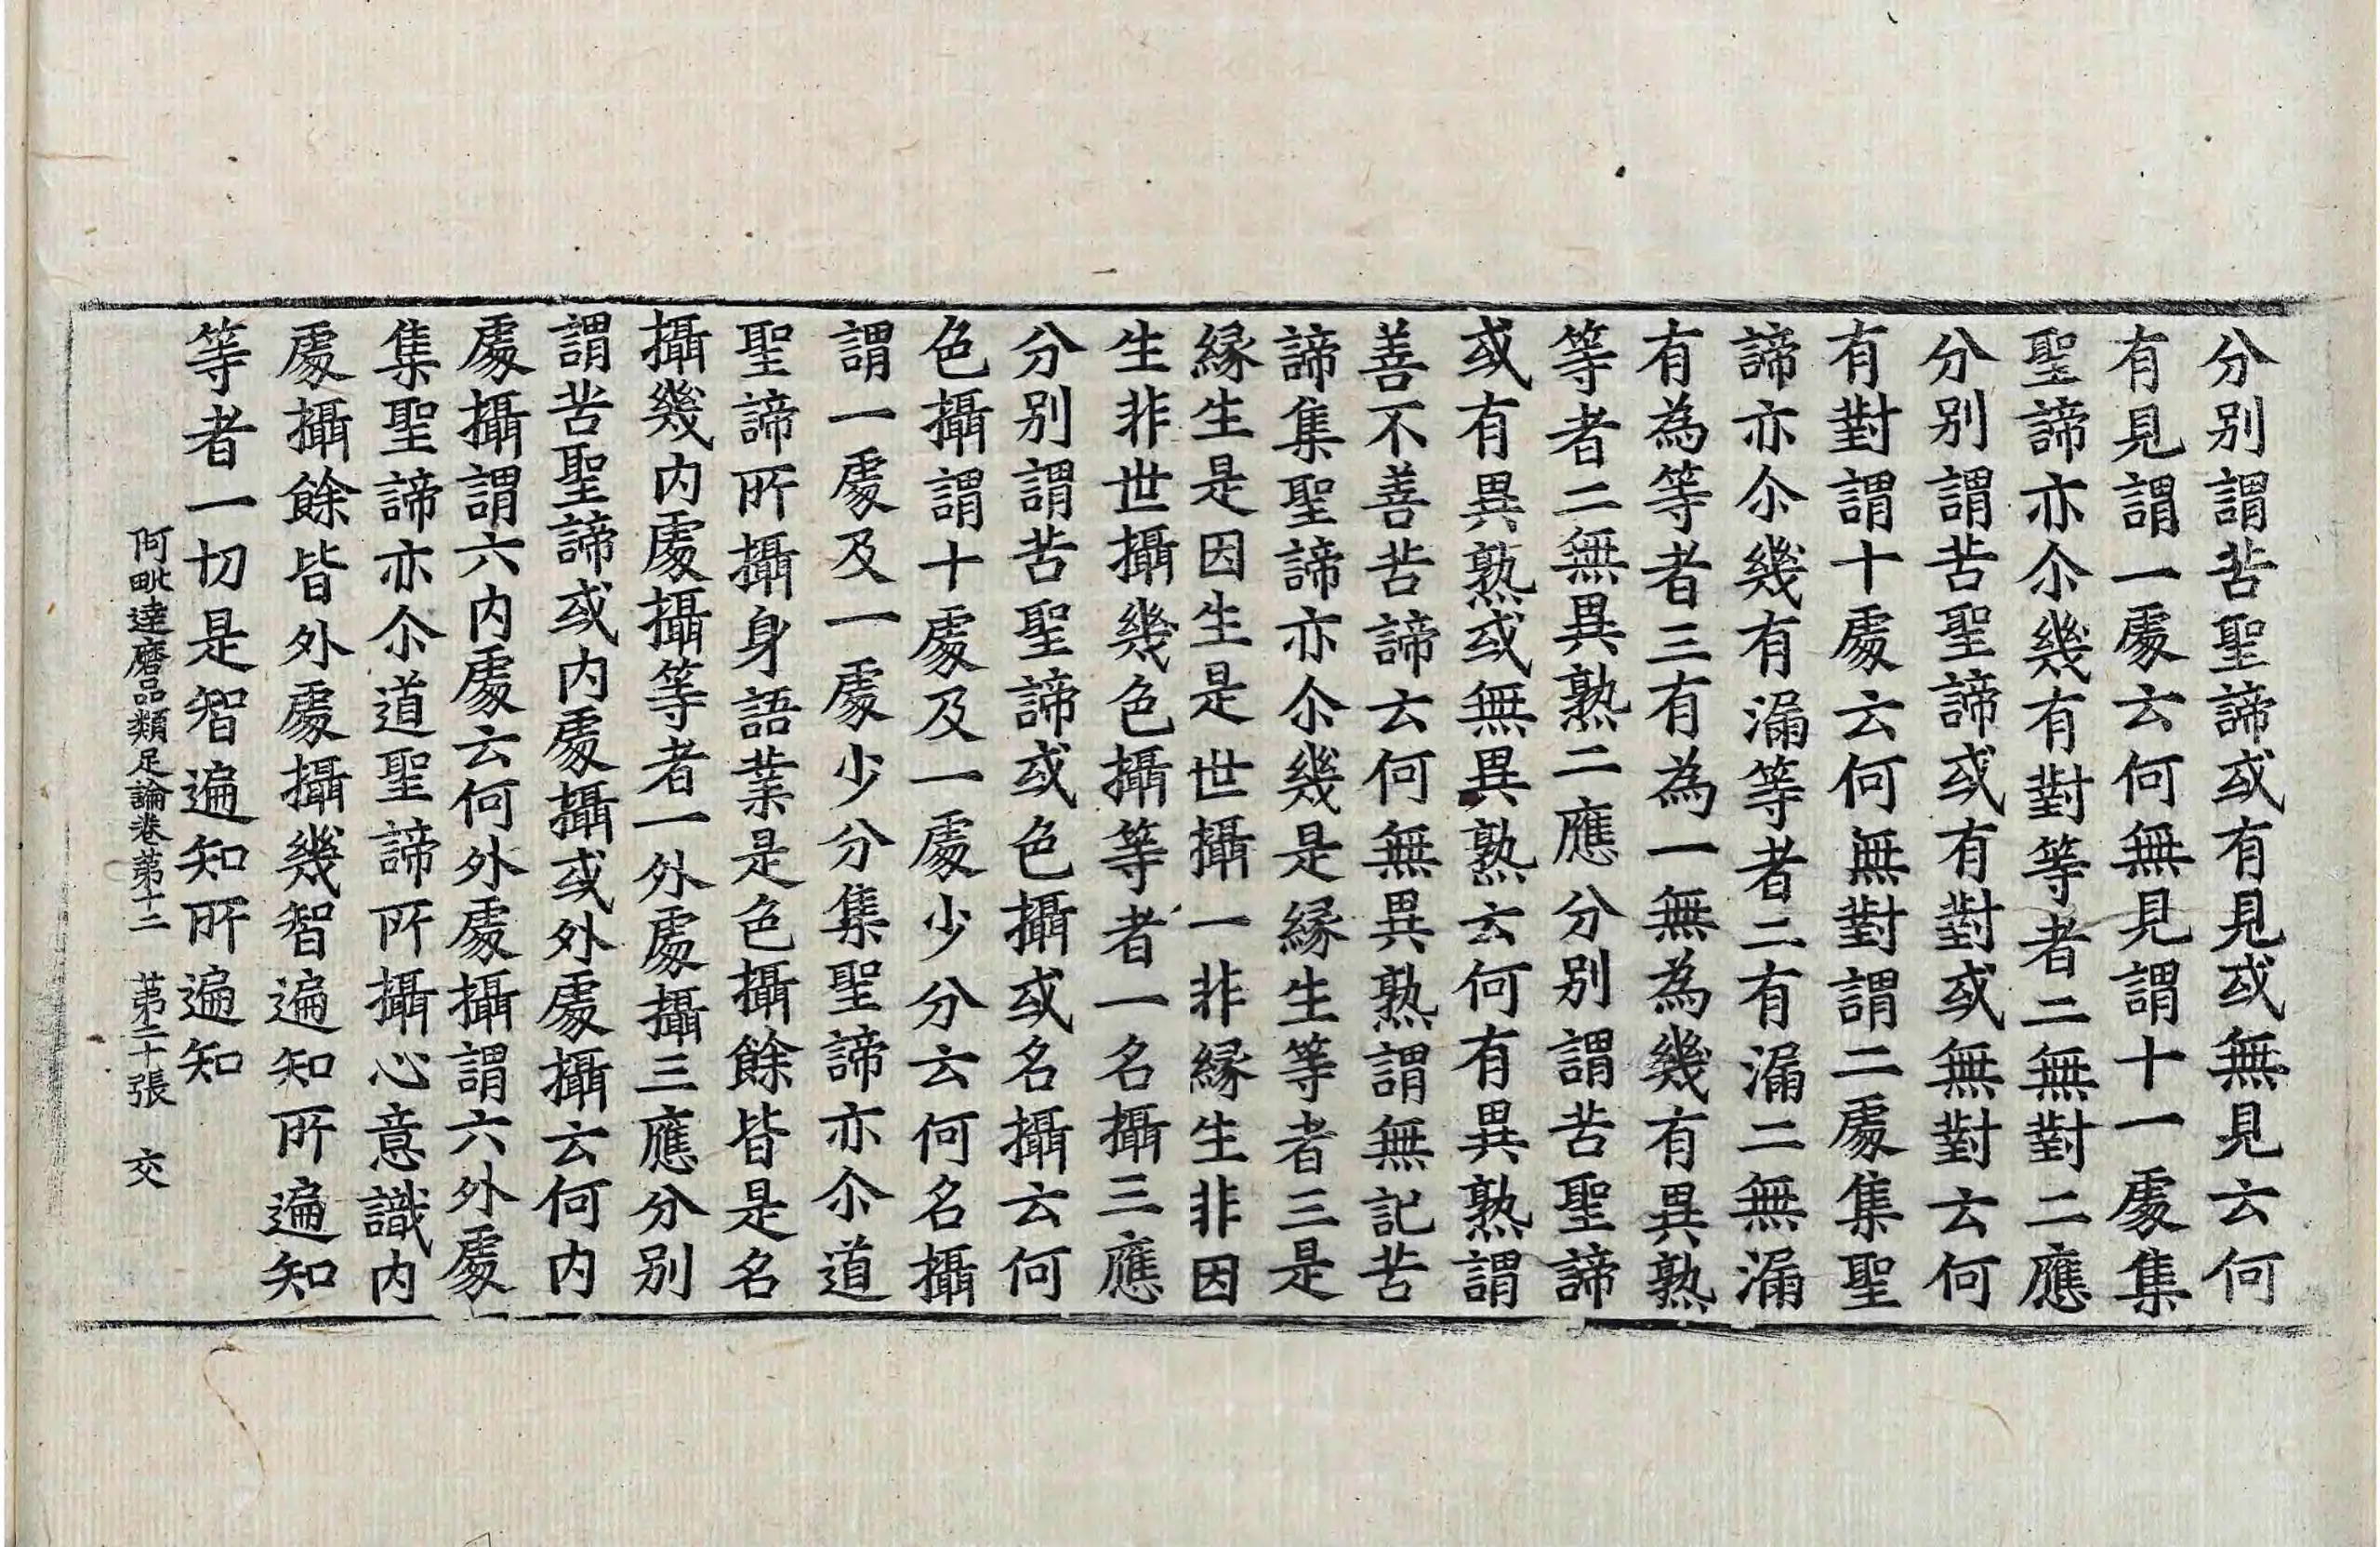 分別謂苦聖諦或有見或無見云何
有見謂一處云何無見謂十一處集
聖諦亦尒幾有對等者二無對二應
分別謂苦聖諦或有對或無對云何
有對謂十處云何無對謂二處集聖
諦亦尒幾有漏等者二有漏二無漏
有為等者三有為一無為幾有異熟
等者二無異熟二應分別謂苦聖諦
或有異熟或無異熟云何有異熟謂
善不善苦諦云何無異熟謂無記苦
諦集聖諦亦尒幾是緣生等者三是
緣生是因生是世攝一非緣生非因
生非世攝幾色攝等者一名攝三應
分別謂苦聖諦或色攝或名攝云何
色攝謂十處及一處少分云何名攝
謂一處及一處少分集聖諦亦尒道
聖諦所攝身語業是色攝餘皆是名
攝幾內處攝等者一外處攝三應分別
謂苦聖諦或內處攝或外處攝云何內
處攝謂六內處云何外處攝謂六外處
集聖諦亦尒道聖諦所攝心意識內
處攝餘皆外處攝幾智遍知所遍知
等者一切是智遍知所遍知
阿毗達磨品類足論卷第十二 第二十張 交